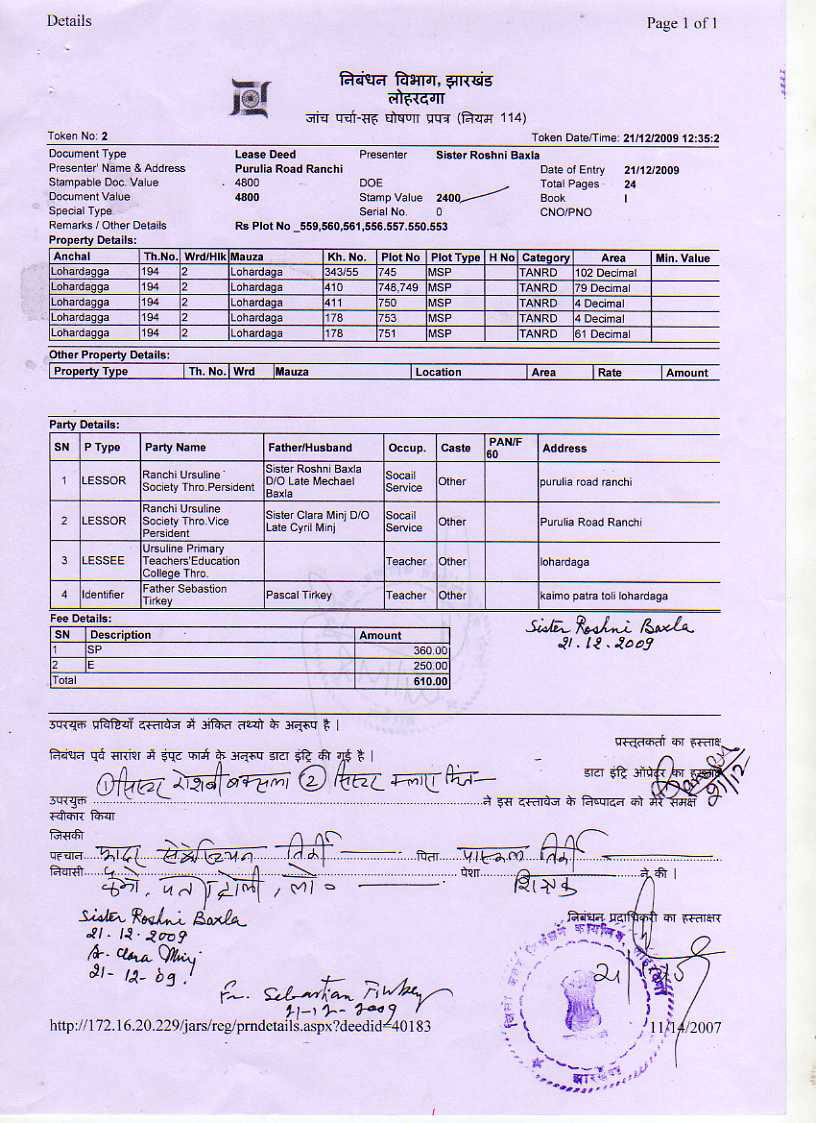 Details
Page 1 of 1
निबंधन विभाग, झारखंड
लोहरदगा
जांच पर्चा-सह घोषणा प्रपत्र (नियम 114)
Token No: 2
Token Date/Time: 21/12/2009 12:35:2
Document Type Lease Deed Presenter Sister Roshni Baxla
Presenter' Name & Address Purulia Road Ranchi Date of Entry 21/12/2009
Stampable Doc. Value 4800 DOE Total Pages 24
Document Value 4800 Stamp Value 2400 Book I
Special Type Serial No. 0 CNO/PNO
Remarks / Other Details Rs Plot No _559,560,561,556.557.550.553
Property Details:
Anchal Th.No. Wrd/Hlk Mauza Kh. No. Plot No Plot Type H No Category Area Min. Value
Lohardagga 194 2 Lohardaga 343/55 745 MSP TANRD 102 Decimal
Lohardagga 194 2 Lohardaga 410 748,749 MSP TANRD 79 Decimal
Lohardagga 194 2 Lohardaga 411 750 MSP TANRD 4 Decimal
Lohardagga 194 2 Lohardaga 178 753 MSP TANRD 4 Decimal
Lohardagga 194 2 Lohardaga 178 751 MSP TANRD 61 Decimal
Other Property Details:
Property Type Th. No. Wrd Mauza Location Area Rate Amount
Party Details:
SN P Type Party Name Father/Husband Occup. Caste PAN/F 60 Address
1 LESSOR Ranchi Ursuline Society Thro.Persident Sister Roshni Baxla D/O Late Mechael Baxla Socail Service Other purulia road ranchi
2 LESSOR Ranchi Ursuline Society Thro.Vice Persident Sister Clara Minj D/O Late Cyril Minj Socail Service Other Purulia Road Ranchi
3 LESSEE Ursuline Primary Teachers'Education College Thro. Teacher Other lohardaga
4 Identifier Father Sebastion Tirkey Pascal Tirkey Teacher Other kaimo patra toli lohardaga
Fee Details:
SN Description Amount
1 SP 360.00
2 E 250.00
Total 610.00
Sister Roshni Baxla
21.12.2009
उपरयुक्त प्रविष्टियाँ दस्तावेज में अंकित तथ्यो के अनुरूप है |
प्रस्तुतकर्ता का हस्ताक्ष
निबंधन पूर्व सारांश में इंपूट फार्म के अनुरूप डाटा इंट्रि की गई है |
डाटा इंट्रि ऑप्रेटर का हस्ताक्ष
21/12
① सिस्टर रोशनी बक्सला ② सिस्टर क्लारा मिंज
उपरयुक्त ने इस दस्तावेज के निष्पादन को मेरे समक्ष
स्वीकार किया
जिसकी
पहचान फादर सेबेस्टियन तिर्की पिता पास्कल तिर्की
निवासी कैमो, पतरा टोली, लो० पेशा शिक्षक ने की |
Sister Roshni Baxla
21.12.2009
निबंधन प्रदाधिकारी का हस्ताक्षर
Sr. Clara Minj
21-12-09.
Fr. Sebastian Tirkey
21-12-2009
झारखण्ड
http://172.16.20.229/jars/reg/prndetails.aspx?deedid=40183
11/14/2007